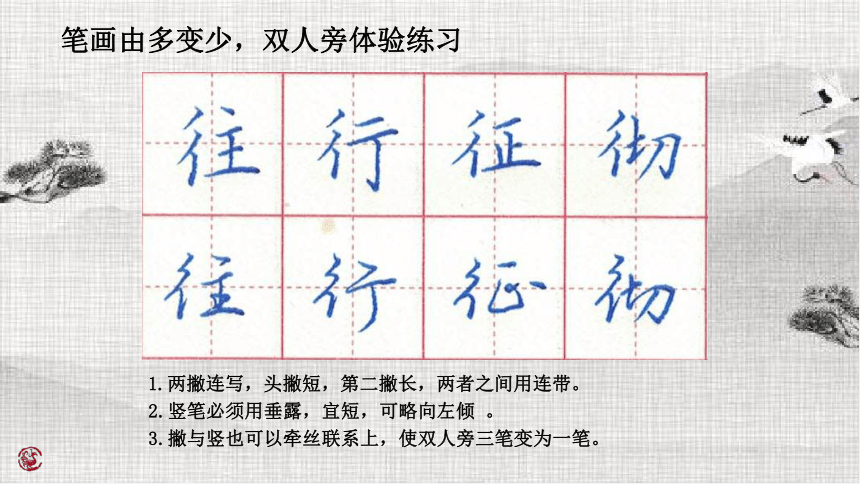 笔画由多变少，双人旁体验练习
往 行 征 彻
往 行 征 彻
1.两撇连写，头撇短，第二撇长，两者之间用连带。
2.竖笔必须用垂露，宜短，可略向左倾 。
3.撇与竖也可以牵丝联系上，使双人旁三笔变为一笔。